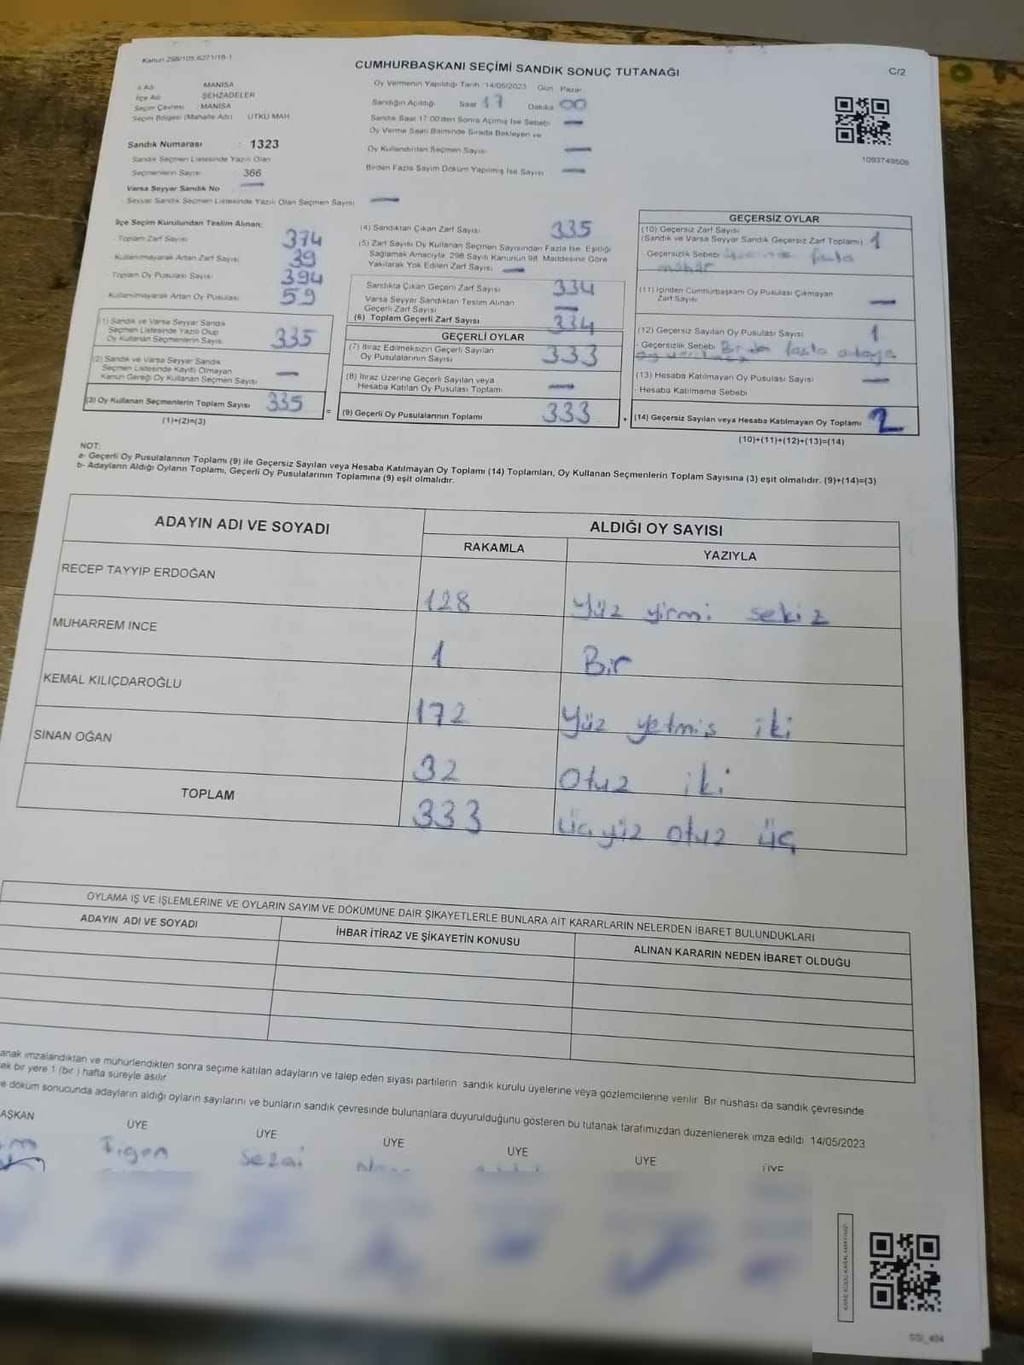 Kanun 298/105,6271/18-1
CUMHURBAŞKANI SEÇİMİ SANDIK SONUÇ TUTANAĞI
C/2
İl Adı: MANİSA
İlçe Adı ŞEHZADELER
Seçim Çevresi MANİSA
Seçim Bölgesi (Mahalle Adı) UTKU MAH
Sandık Numarası : 1323
Sandık Seçmen Listesinde Yazılı Olan
Seçmenlerin Sayısı 366
Varsa Seyyar Sandık No —
Seyyar Sandık Seçmen Listesinde Yazılı Olan Seçmen Sayısı —
Oy Vermenin Yapıldığı Tarih 14/05/2023 Gün Pazar
Sandığın Açıldığı Saat 17 Dakika 00
Sandık Saat 17:00'den Sonra Açılmış İse Sebebi —
Oy Verme Saati Bitiminde Sırada Bekleyen ve
Oy Kullandırılan Seçmen Sayısı —
Birden Fazla Sayım Döküm Yapılmış İse Sayısı —
1093749506
İlçe Seçim Kurulundan Teslim Alınan:
Toplam Zarf Sayısı 374
Kullanılmayarak Artan Zarf Sayısı 39
Toplam Oy Pusulası Sayısı 394
Kullanılmayarak Artan Oy Pusulası 59
(1) Sandık ve Varsa Seyyar Sandık
Seçmen Listesinde Yazılı Olup
Oy Kullanan Seçmenlerin Sayısı 335
(2) Sandık ve Varsa Seyyar Sandık
Seçmen Listesinde Kayıtlı Olmayan
Kanun Gereği Oy Kullanan Seçmen Sayısı —
(3) Oy Kullanan Seçmenlerin Toplam Sayısı 335
(1)+(2)=(3)
=
(4) Sandıktan Çıkan Zarf Sayısı 335
(5) Zarf Sayısı Oy Kullanan Seçmen Sayısından Fazla İse, Eşitliği
Sağlamak Amacıyla 298 Sayılı Kanunun 98. Maddesine Göre
Yakılarak Yok Edilen Zarf Sayısı —
Sandıkta Çıkan Geçerli Zarf Sayısı 334
Varsa Seyyar Sandıktan Teslim Alınan
Geçerli Zarf Sayısı —
(6) Toplam Geçerli Zarf Sayısı 334
GEÇERLİ OYLAR
(7) İtiraz Edilmeksizin Geçerli Sayılan
Oy Pusulalarının Sayısı 333
(8) İtiraz Üzerine Geçerli Sayılan veya
Hesaba Katılan Oy Pusulası Toplamı —
(9) Geçerli Oy Pusulalarının Toplamı 333
+
GEÇERSİZ OYLAR
(10) Geçersiz Zarf Sayısı
(Sandık ve Varsa Seyyar Sandık Geçersiz Zarf Toplamı) 1
Geçersizlik Sebebi fazla
mühür
(11) İçinden Cumhurbaşkanı Oy Pusulası Çıkmayan
Zarf Sayısı —
(12) Geçersiz Sayılan Oy Pusulası Sayısı 1
Geçersizlik Sebebi Birden fazla adaya
(13) Hesaba Katılmayan Oy Pusulası Sayısı —
Hesaba Katılmama Sebebi
(14) Geçersiz Sayılan veya Hesaba Katılmayan Oy Toplamı 2
(10)+(11)+(12)+(13)=(14)
NOT:
a- Geçerli Oy Pusulalarının Toplamı (9) ile Geçersiz Sayılan veya Hesaba Katılmayan Oy Toplamı (14) Toplamları, Oy Kullanan Seçmenlerin Toplam Sayısına (3) eşit olmalıdır. (9)+(14)=(3)
b- Adayların Aldığı Oyların Toplamı, Geçerli Oy Pusulalarının Toplamına (9) eşit olmalıdır.
ADAYIN ADI VE SOYADI
ALDIĞI OY SAYISI
RAKAMLA YAZIYLA
RECEP TAYYIP ERDOĞAN 128 Yüz yirmi sekiz
MUHARREM INCE 1 Bir
KEMAL KILIÇDAROĞLU 172 Yüz yetmiş iki
SINAN OĞAN 32 Otuz iki
TOPLAM 333 üçyüz otuz üç
OYLAMA İŞ VE İŞLEMLERİNE VE OYLARIN SAYIM VE DÖKÜMÜNE DAİR ŞİKAYETLERLE BUNLARA AİT KARARLARIN NELERDEN İBARET BULUNDUKLARI
ADAYIN ADI VE SOYADI İHBAR İTİRAZ VE ŞİKAYETİN KONUSU ALINAN KARARIN NEDEN İBARET OLDUĞU
anak imzalandıktan ve mühürlendikten sonra seçime katılan adayların ve talep eden siyasi partilerin sandık kurulu üyelerine veya gözlemcilerine verilir. Bir nüshası da sandık çevresinde
ek bir yere 1 (bir ) hafta süreyle asılır
e döküm sonucunda adayların aldığı oyların sayılarını ve bunların sandık çevresinde bulunanlara duyurulduğunu gösteren bu tutanak tarafımızdan düzenlenerek imza edildi. 14/05/2023
AŞKAN ÜYE ÜYE ÜYE ÜYE ÜYE ÜYE
Figen Sezai
SSI_404